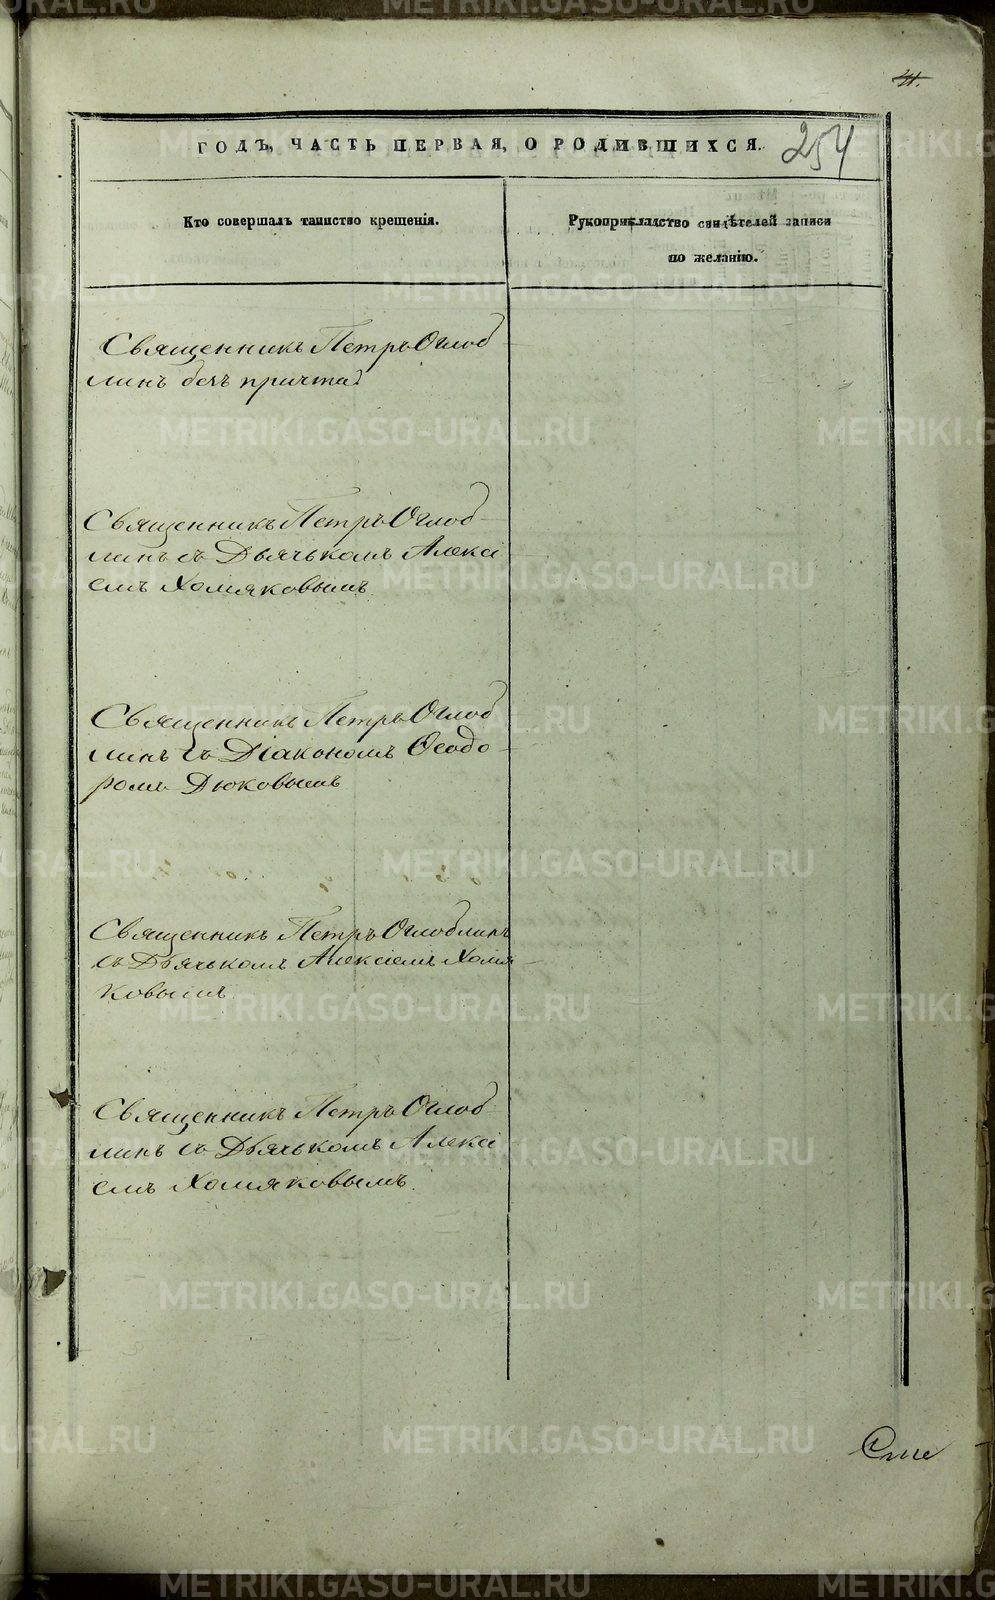 254
ГОДЪ, ЧАСТЬ ПЕРВАЯ, О РОДИВШИХСЯ.
Кто совершалъ таинство крещенія.
Рукоприкладство свидѣтелей записи
по желанію.
Священникъ Петръ Оглоб
линъ безъ причта
Священникъ Петръ Оглоб-
линъ съ Дьячькомъ Алексі
емъ Хомяковымъ
Священникъ Петръ Оглоб
линъ съ Діакономъ Ѳеодо-
ромъ Дюковымъ
Священникъ Петръ Оглоблинъ
съ Дьячькомъ Алексіемъ Хомя-
ковымъ
Священникъ Петръ Оглоб
линъ съ Дьячькомъ Алексі
емъ Хомяковымъ.
METRIKI.GASO-URAL.RU